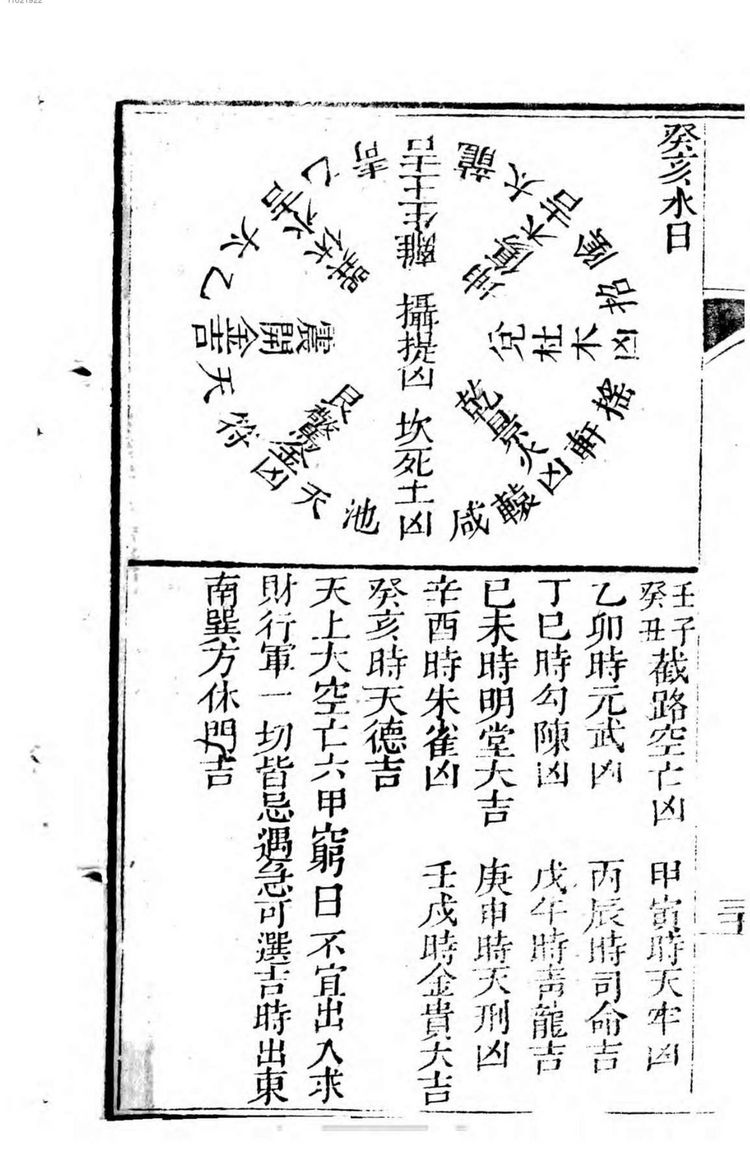 癸亥水日
離生土吉
青龍
坤傷木吉
太陰
兌杜木凶
招搖
乾景火凶
軒轅
坎死土凶
咸池
艮驚金凶
天符
震開金吉
天乙
巽休木吉
太乙
攝提凶
壬子癸丑截路空亡凶 甲寅時天牢凶
乙卯時元武凶 丙辰時司命吉
丁巳時勾陳凶 戊午時青龍吉
已未時明堂大吉 庚申時天刑凶
辛酉時朱雀凶 壬戌時金貴大吉
癸亥時天德吉
天上大空亡六甲窮日不宜出入求
財行軍一切皆忌遇急可選吉時出東
南巽方休門吉